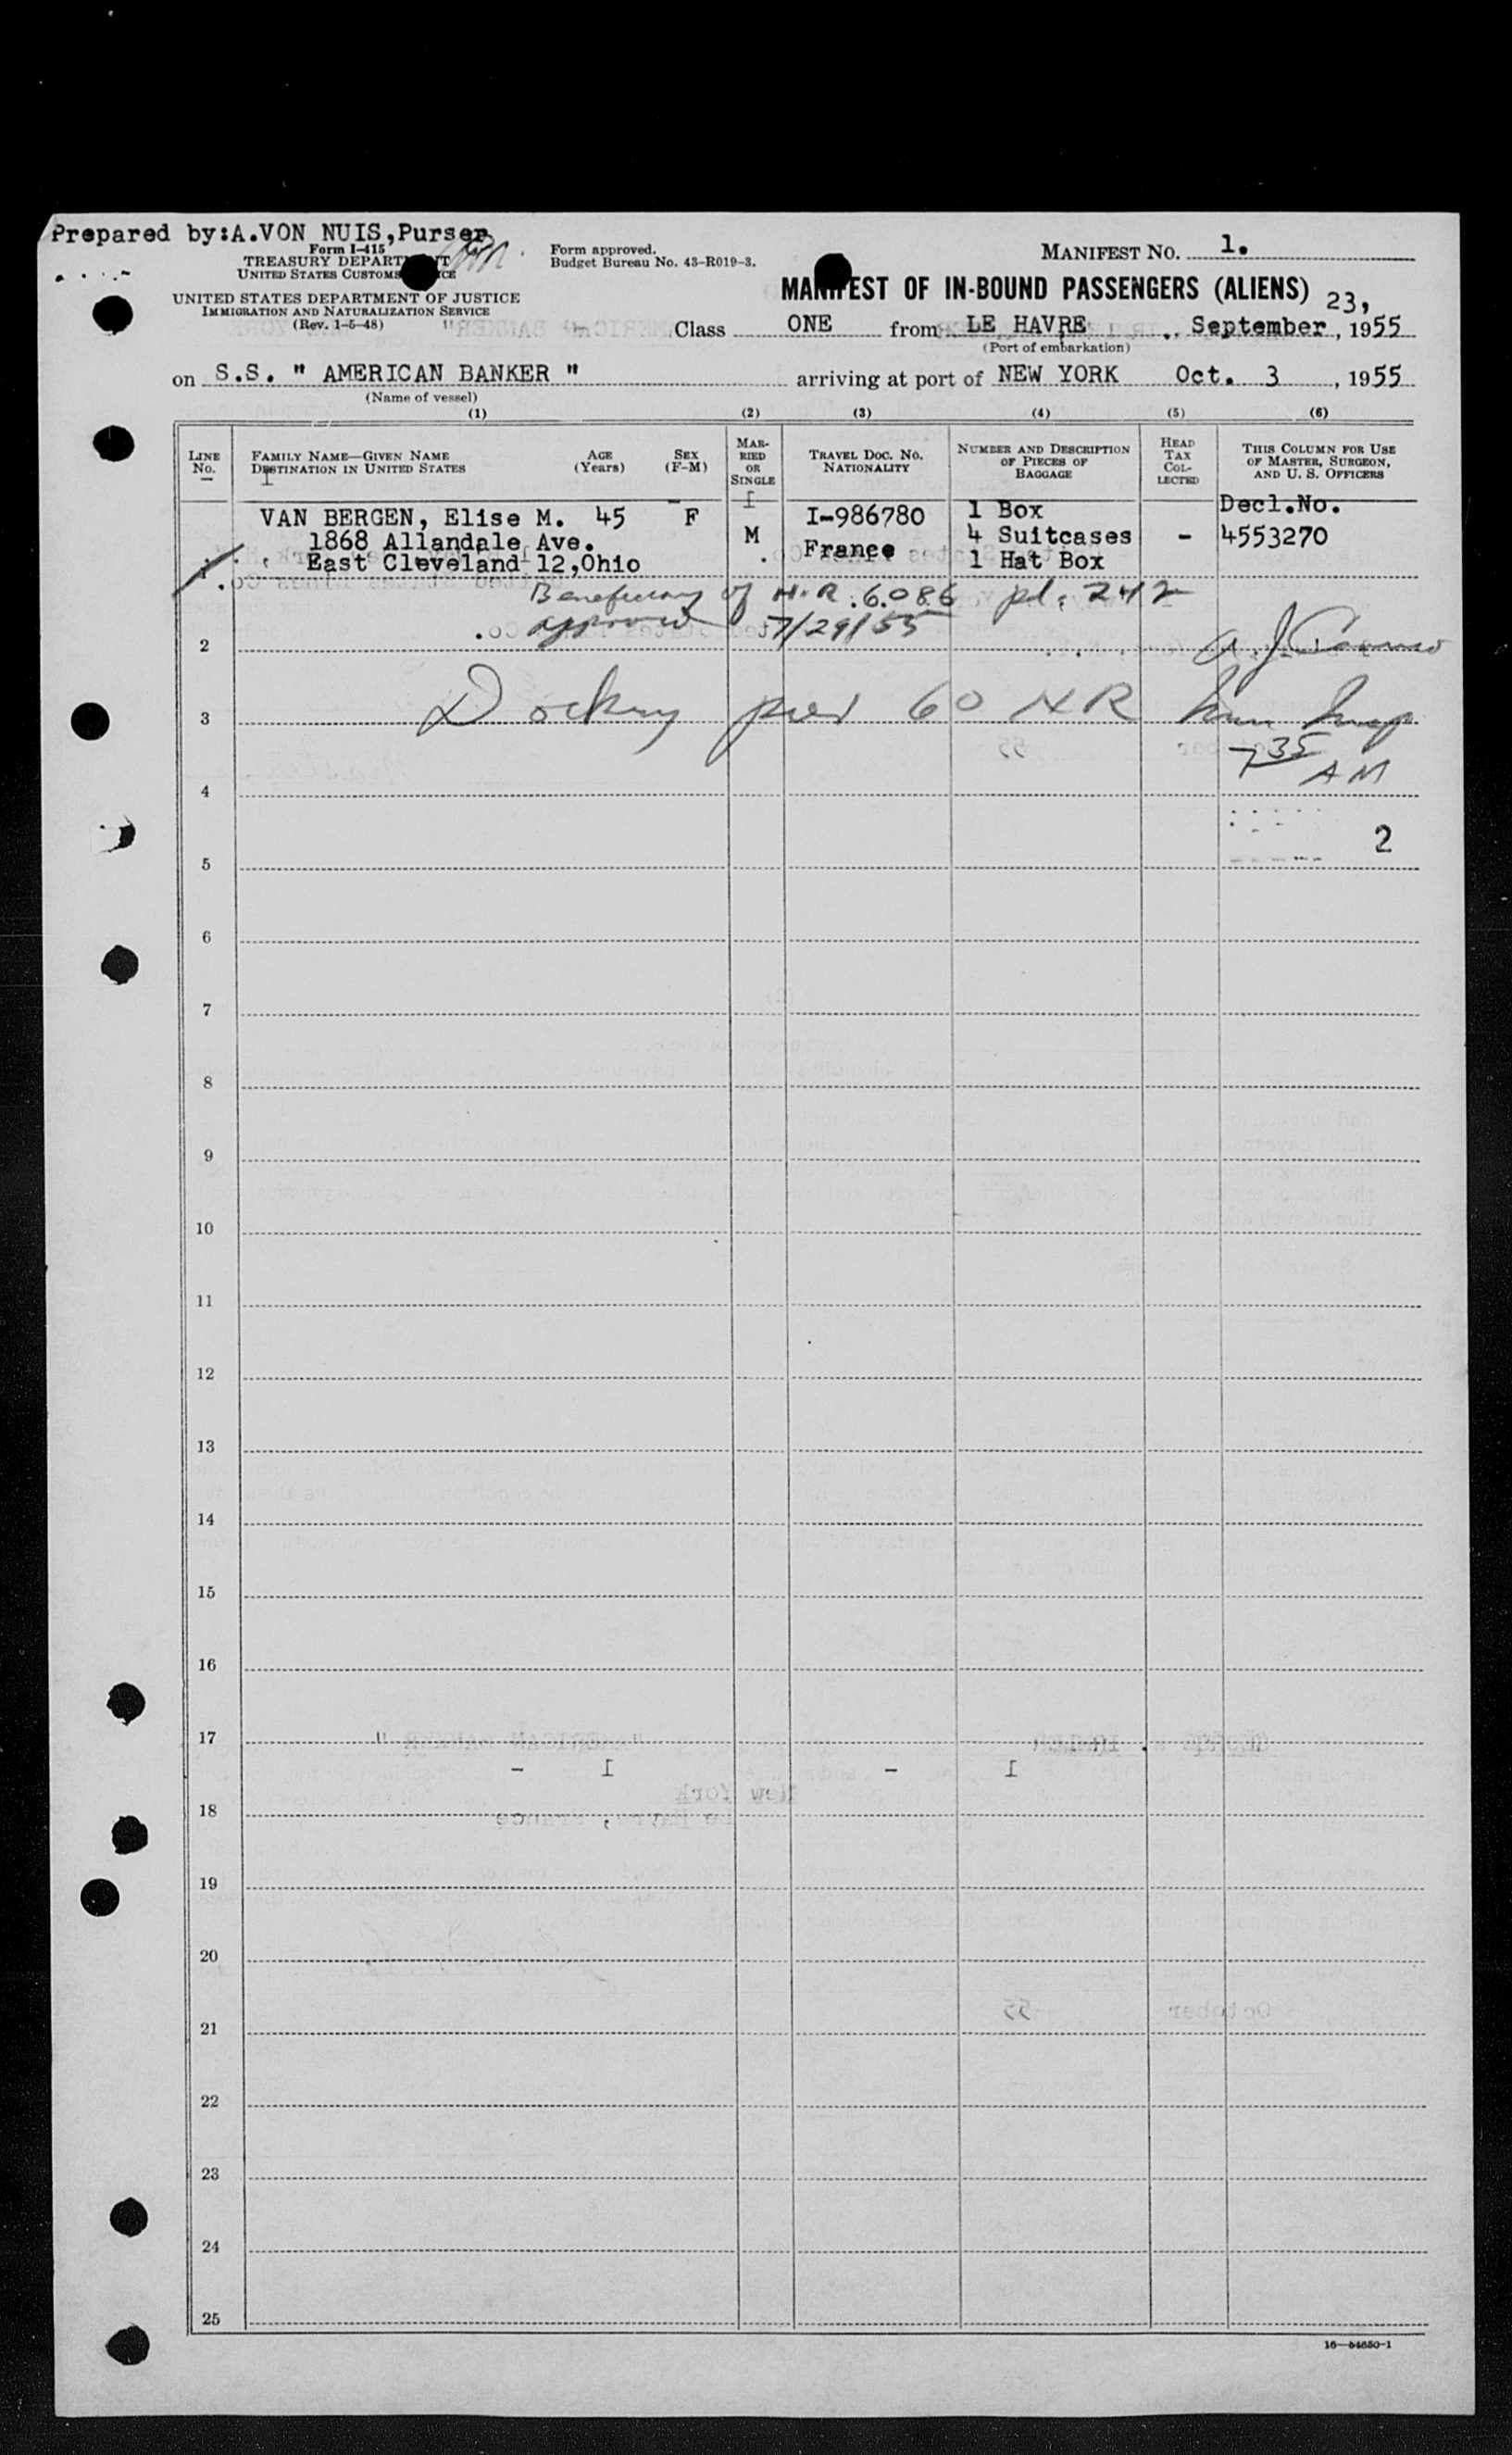 Prepared by:A.VON NUIS,Purser
Form I-415
TREASURY DEPARTMENT
UNITED STATES CUSTOMS
UNITED STATES DEPARTMENT OF JUSTICE
IMMIGRATION AND NATURALIZATION SERVICE
(Rev. 1-5-48)
Form approved.
Budget Bureau No. 43-R019-3.
MANIFEST NO. 1.
MANIFEST OF IN-BOUND PASSENGERS (ALIENS)
Class ONE from LE HAVRE September 23, 1955
(Port of embarkation)
on S.S. " AMERICAN BANKER " arriving at port of NEW YORK Oct. 3, 1955
(Name of vessel)
(1) (2) (3) (4) (5) (6)
LINE No.
FAMILY NAME—GIVEN NAME
DESTINATION IN UNITED STATES
AGE (Years)
SEX (F-M)
MARRIED OR SINGLE
TRAVEL DOC. NO. NATIONALITY
NUMBER AND DESCRIPTION OF PIECES OF BAGGAGE
HEAD TAX COLLECTED
THIS COLUMN FOR USE OF MASTER, SURGEON, AND U. S. OFFICERS
VAN BERGEN, Elise M. 45 F M I-986780 1 Box Decl.No.
1868 Allandale Ave. France 4 Suitcases - 4553270
East Cleveland 12,Ohio 1 Hat Box
Beneficiary of H.R. 6086 pl. 242
approved 7/29/55
2
Docking pier 60 NR
3
7 35 AM
4
2
5
6
7
8
9
10
11
12
13
14
15
16
17
- 1 - 1
New York
18
Le Havre, France
19
20
October 55
21
22
23
24
25
16—54650-1